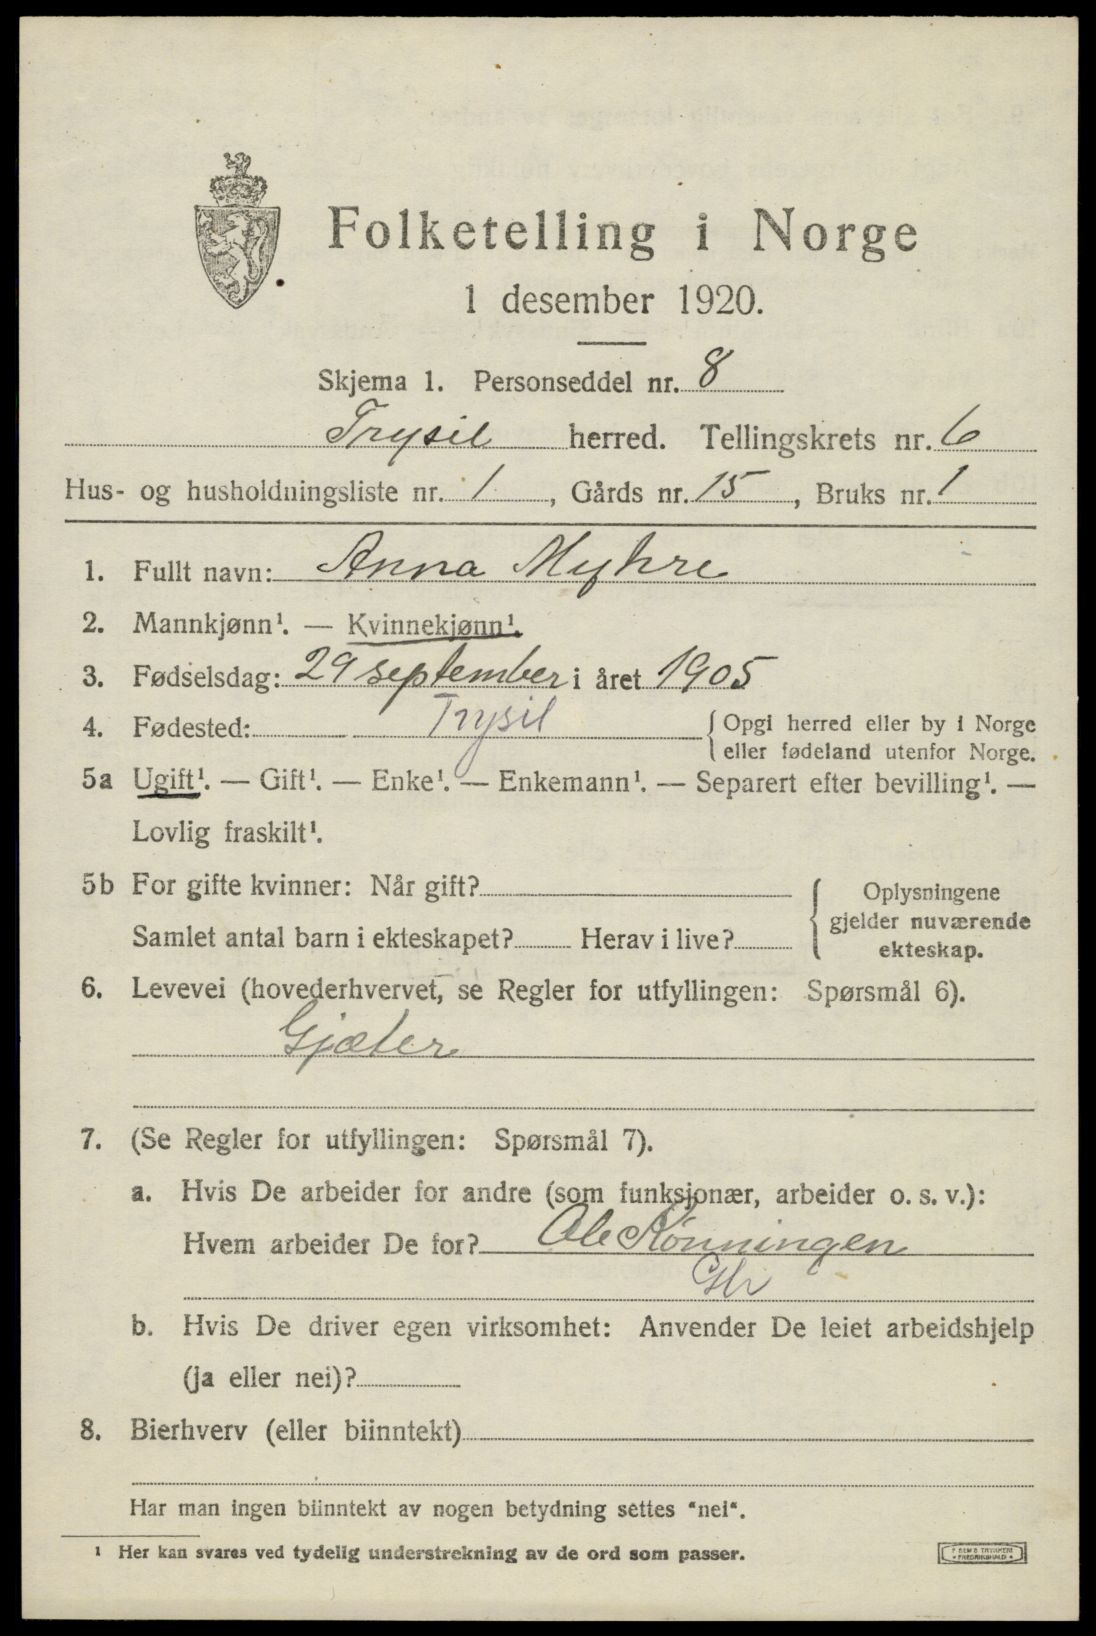 Folketelling i Norge
1 desember 1920.
Skjema 1. Personseddel nr. 8
Trysil herred. Tellingskrets nr. 6
Hus- og husholdningsliste nr. 1, Gårds nr. 15, Bruks nr. 1
1. Fullt navn: Anna Myhre
2. Mannkjønn¹. — Kvinnekjønn¹.
3. Fødselsdag: 29 september i året 1905
4. Fødested: Trysil {Opgi herred eller by i Norge
eller fødeland utenfor Norge.
5a Ugift¹. — Gift¹. — Enke¹. — Enkemann¹. — Separert efter bevilling¹. —
Lovlig fraskilt¹.
5b For gifte kvinner: Når gift?
Samlet antal barn i ekteskapet? Herav i live?
Oplysningene
gjelder nuværende
ekteskap.
6. Levevei (hovederhvervet, se Regler for utfyllingen: Spørsmål 6).
Gjæter
7. (Se Regler for utfyllingen: Spørsmål 7).
a. Hvis De arbeider for andre (som funksjonær, arbeider o. s. v.):
Hvem arbeider De for? Ole Rønningen
b. Hvis De driver egen virksomhet: Anvender De leiet arbeidshjelp
(ja eller nei)?
8. Bierhverv (eller biinntekt)
Har man ingen biinntekt av nogen betydning settes "nei".
¹ Her kan svares ved tydelig understrekning av de ord som passer.